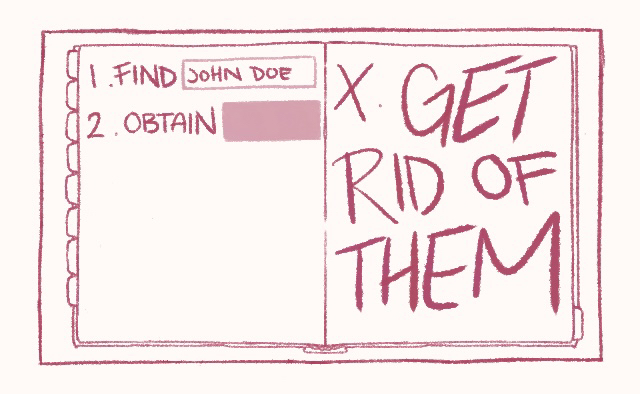 1. FIND JOHN DOE
2. OBTAIN
X. GET
RID OF
THEM